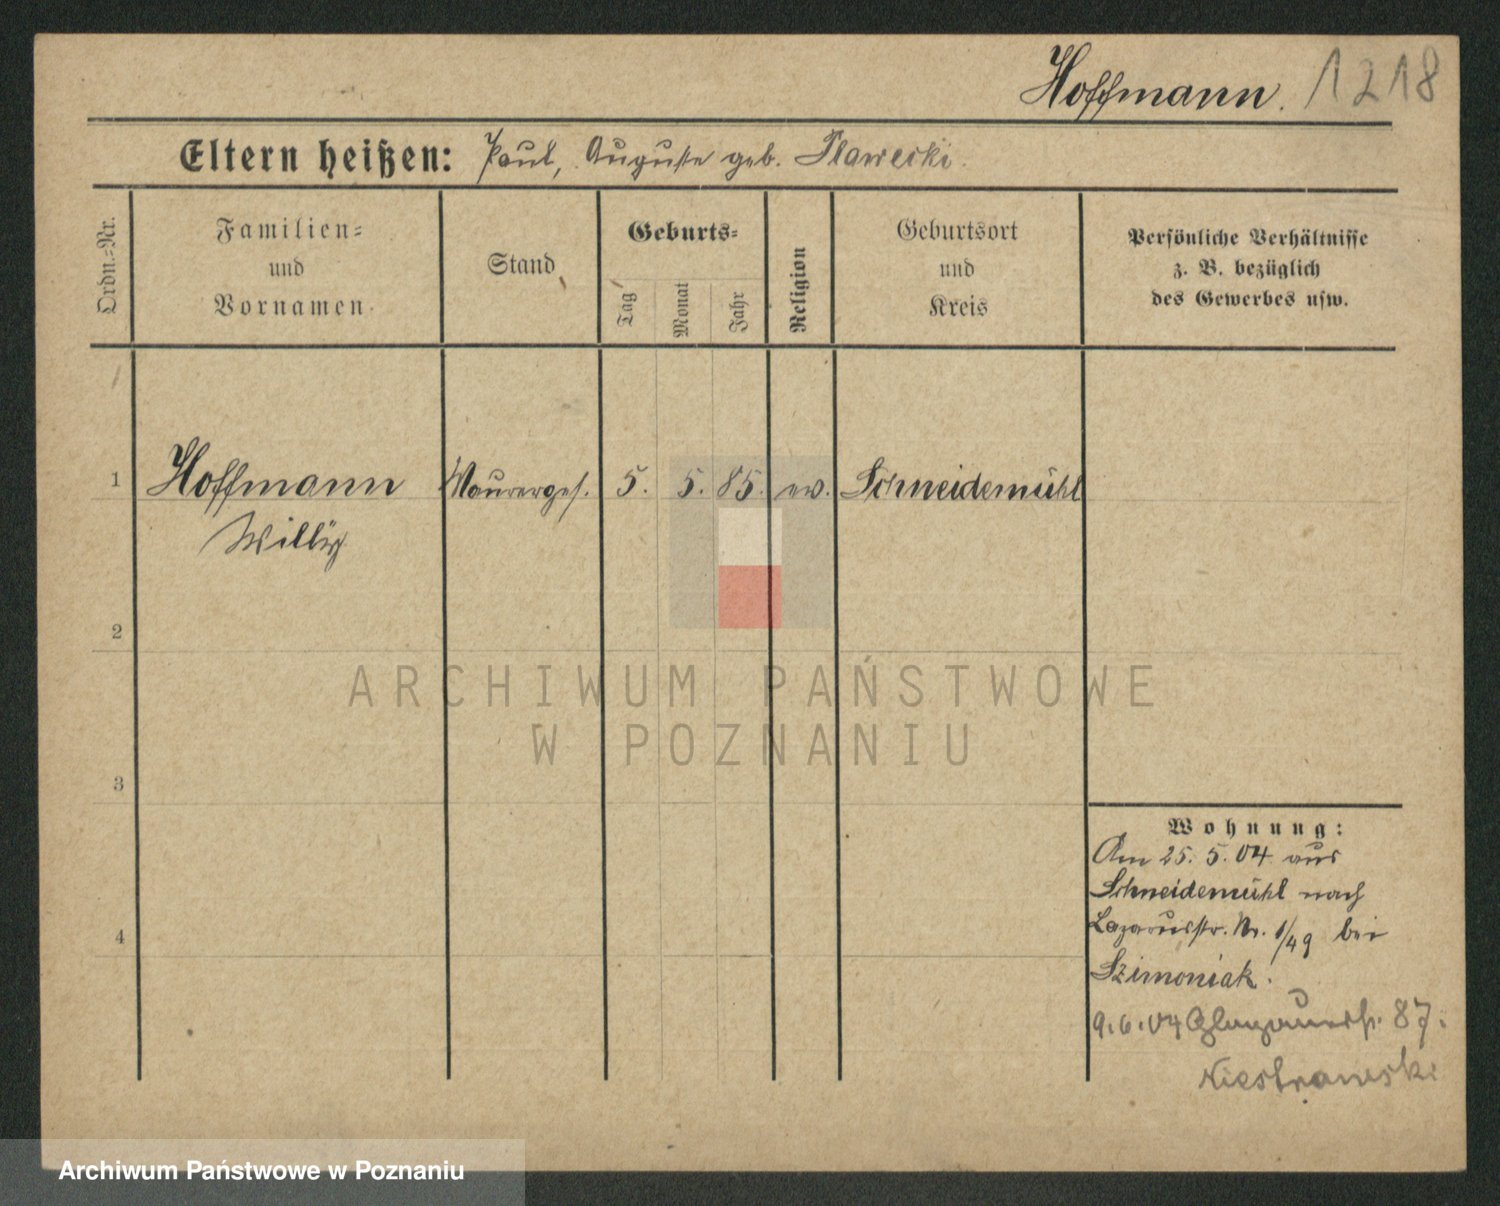 Hoffmann. 1218
Eltern heißen: Paul, Auguste geb. Plawecki.
Ordn.-Nr.
Familien-
und
Vornamen.
Stand
Geburts-
Tag
Monat
Jahr
Religion
Geburtsort
und
Kreis
Persönliche Verhältnisse
z. B. bezüglich
des Gewerbes usw.
1 Hoffmann Maurerges. 5. 5. 85. ev. Schneidemühl
Willy
2
3
4
Wohnung:
Am 25. 5. 04 aus
Schneidemühl nach
Lazarusstr. Nr. 1/49 bei
Szimoniak.
9.6.04 87.
ARCHIWUM PAŃSTWOWE
W POZNANIU
Archiwum Państwowe w Poznaniu